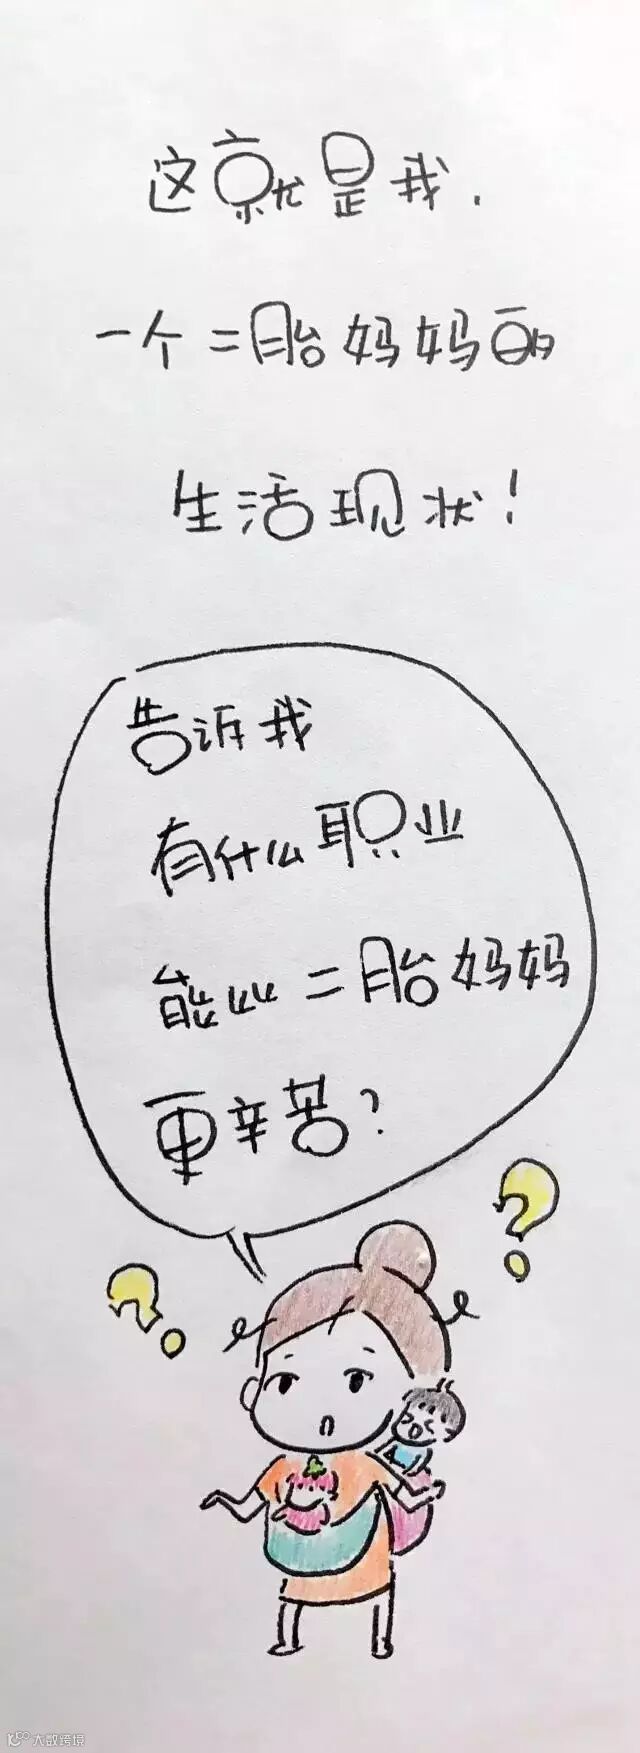 这就是我.
一个二胎妈妈的
生活现状!
告诉我
有什么职业
能比二胎妈妈
更辛苦?
大数跨境